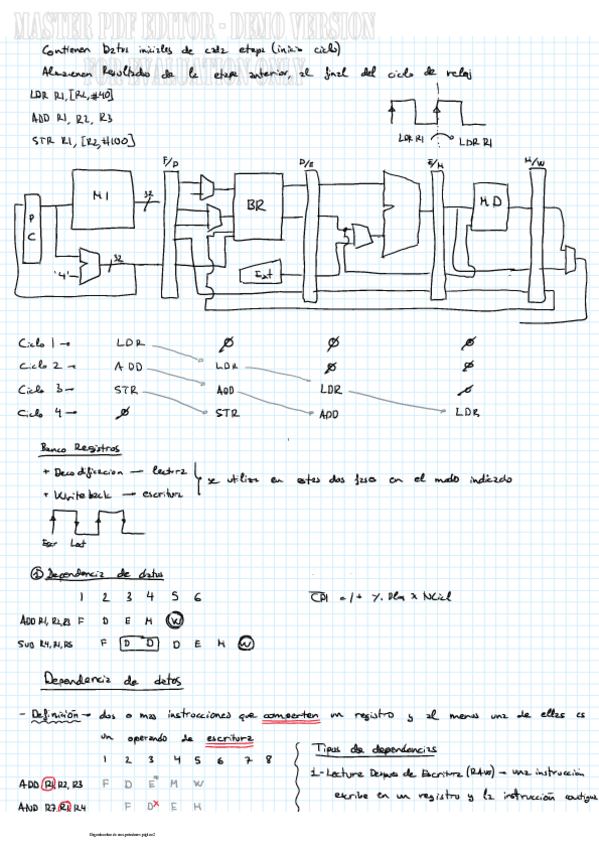 MASTER PDF EDITOR - DEMO VERSION
FOR EVALUATION ONLY
Contienen Datos iniciales de cada etapa (inicio ciclo)
Almacenan Resultados de la etapa anterior, al final del ciclo de reloj
LDR R1, [R2, #40]
ADD R1, R2, R3
STR R1, [R2, #100]
LDR R1 LDR R1
F/D D/E E/M M/W
PC MI 32 BR MD
'4' 32 Ext
Ciclo 1 → LDR ∅ ∅ ∅
Ciclo 2 → ADD LDR ∅ ∅
Ciclo 3 → STR ADD LDR ∅
Ciclo 4 → ∅ STR ADD LDR
Banco Registros
+ Decodificacion → lectura
se utiliza en estas dos fases en el modo indicado
+ Write back → escritura
Escr Lect
① Dependencia de datos
1 2 3 4 5 6
CPI = 1 + % Dla x NCicl
ADD R1, R2, R3 F D E M W
SUB R4, R1, R5 F D D D E M W
Dependencia de datos
- Definición → dos o mas instrucciones que comparten un registro y al menos una de ellas es
un operando de escritura
1 2 3 4 5 6 7 8
ADD R1, R2, R3 F D E M W
AND R7, R1, R4 F D x E M
Tipos de dependencias
1- Lectura Despues de Escritura (RAW) → una instrucción
escribe en un registro y la instrucción contigua